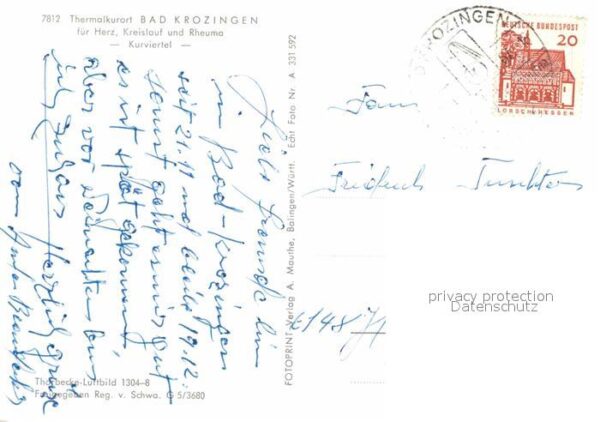 7812 Thermalkurort BAD KROZINGEN
für Herz, Kreislauf und Rheuma
— Kurviertel —
bin
in Bad-Krozingen
seit 21.11 und bleibe 19.12.
sonst geht es mir gut
es ist spät gekommen
aber vor Weihnachten bin
ich zuhaus Herzliche Grüße
von
Thorbecke-Luftbild 1304-8
Freigegeben Reg. v. Schwa. G 5/3680
FOTOPRINT Verlag A. Mauthe, Balingen/Württ. Echt Foto Nr. A 331 592
KROZINGEN
DEUTSCHE BUNDESPOST
20
LORSCH/HESSEN
Fam
Friedrich
privacy protection
Datenschutz